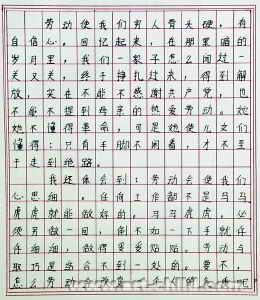 劳动使我们穷人骨头硬，有
自信心。回忆起来，在那黑暗的
岁月里，我们一家子怎么闯过一
关又关，终于挣扎过来，得到解
放，实在不能不感谢共产党，也
不能不提到母亲的热爱劳动。她
她不懂得革命，可是她使儿女们
懂得：只有手脚不闲着，才不至
于走到绝路。
我还体会到：劳动会使我们
心思细。任何工作都不是马马
虎虎就能做好的。马马虎虎，必
须另做一回，倒不如一下手就仔
仔细细，做得妥妥贴贴。劳动与
取巧是结合不到一处的。要不，
怎么劳动会改变人的气质呢